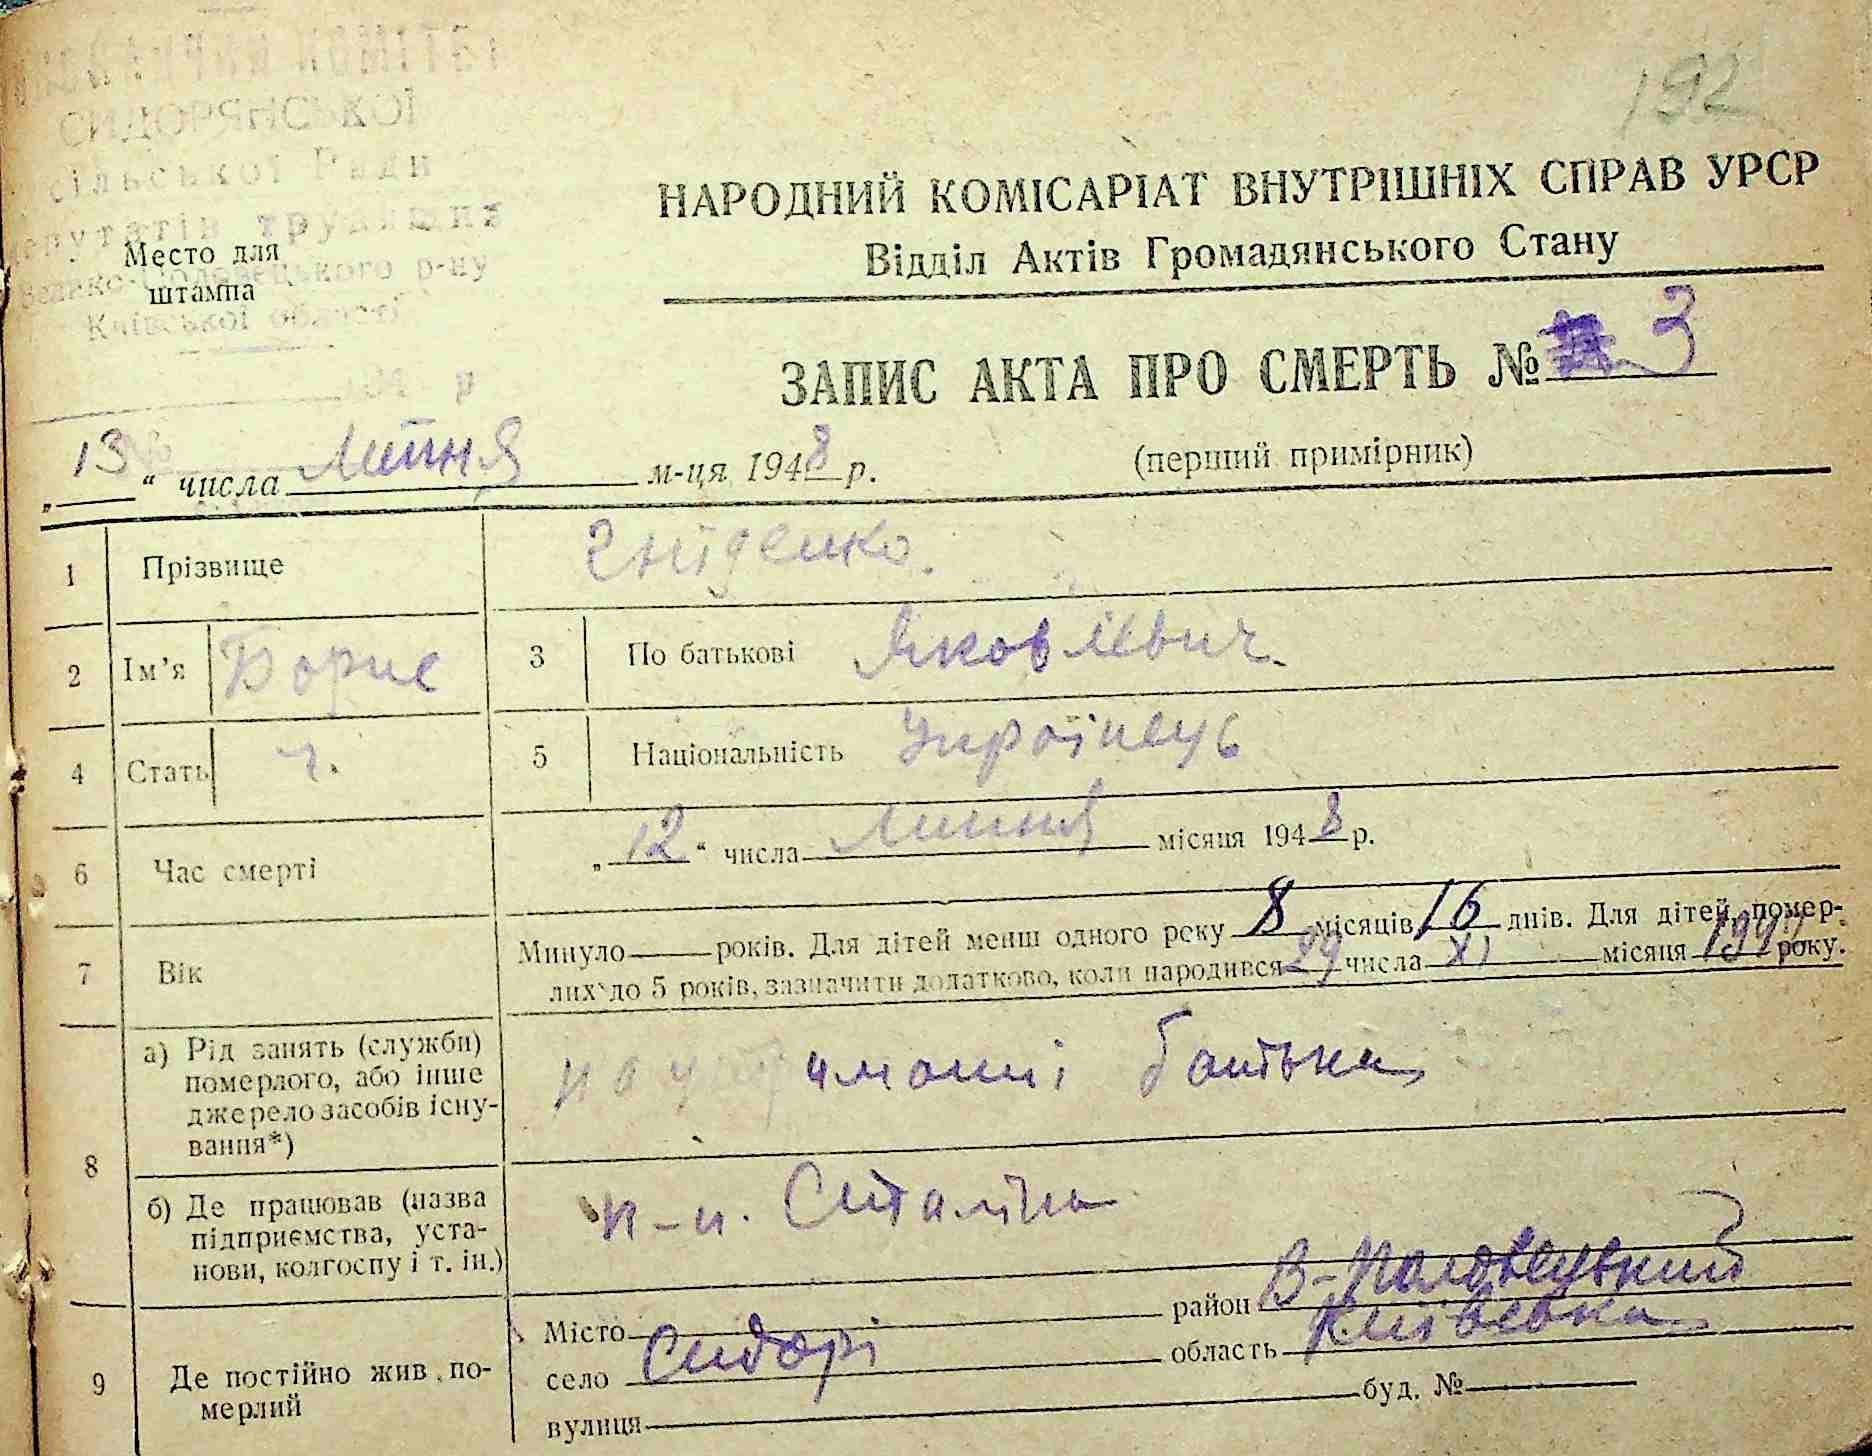 192
КОМІТЕТ
СИДОРЯНСЬКОЇ
сільської Ради
депутатів трудящих
Велико-Половецького р-ну
Київської області
194 р
Место для
штампа
НАРОДНИЙ КОМІСАРІАТ ВНУТРІШНІХ СПРАВ УРСР
Відділ Актів Громадянського Стану
ЗАПИС АКТА ПРО СМЕРТЬ № 3
(перший примірник)
„13“ числа Липня м-ця 1948 р.
1 Прізвище Гніденко.
2 Ім’я Борис 3 По батькові Яковлевич.
4 Стать ч. 5 Національність Українець
6 Час смерті „12“ числа Липня місяця 1948 р.
7 Вік Минуло — років. Для дітей менш одного року 8 місяців 16 днів. Для дітей, помер-
лих до 5 років, зазначити додатково, коли народився 29 числа XI місяця 1947 року.
8 а) Рід занять (служби)
померлого, або інше
джерело засобів існу-
вання*)
на утриманні батька
б) Де працював (назва
підприємства, уста-
нови, колгоспу і т. ін.)
к-п. Сталіна
9 Де постійно жив по-
мерлий
Місто район В-Половецький
село Сидорі область Київська
вулиця буд. №